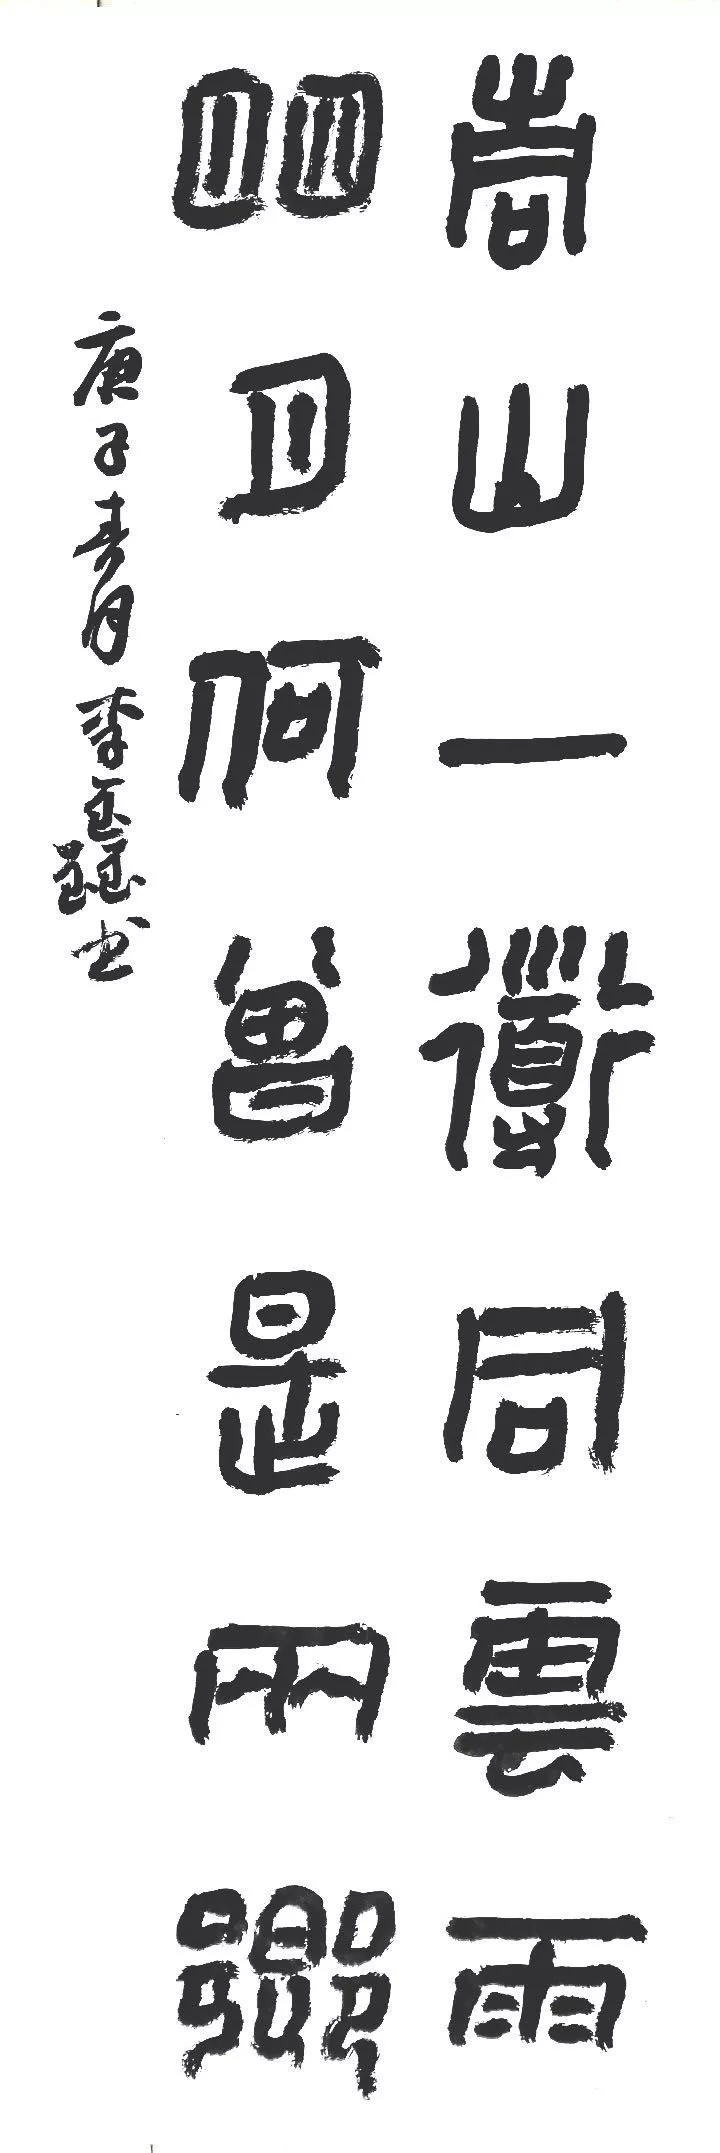 青山一道同雲雨
明月何曾是兩鄉
庚子春月李鑫书